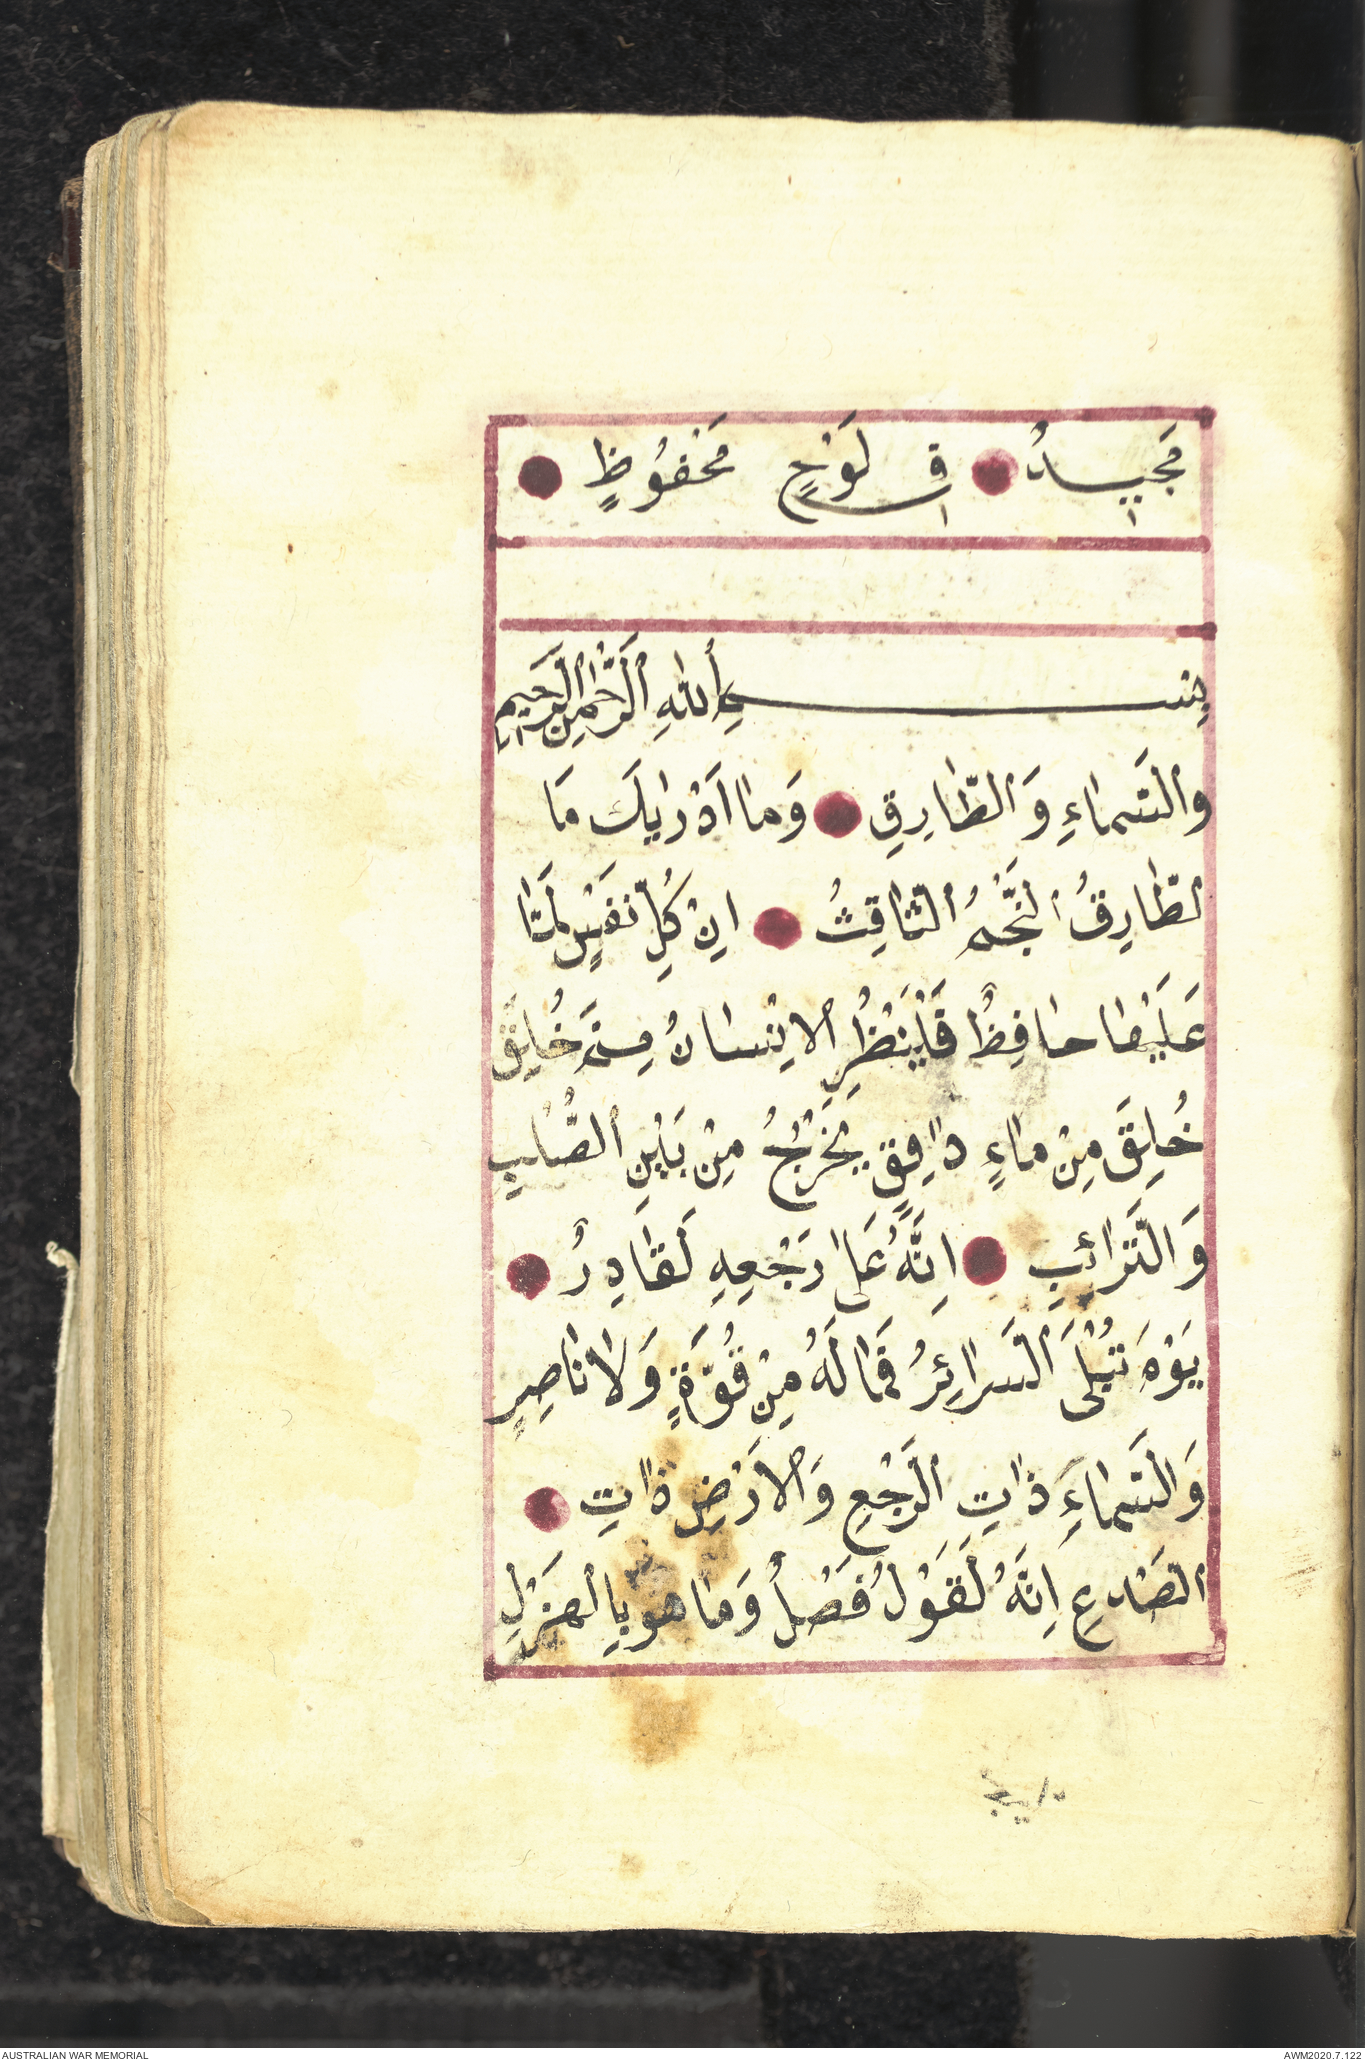 مَجِيدٌ فِي لَوْحٍ مَحْفُوظٍ
بِسْمِ اللّٰهِ الرَّحْمٰنِ الرَّحِيمِ
وَالسَّمَاءِ وَالطَّارِقِ وَمَا اَدْرٰيكَ مَا
الطَّارِقُ النَّجْمُ الثَّاقِبُ اِنْ كُلِّ نَفْسٍ لَمَّا
عَلَيْهَا حَافِظٌ فَلْيَنْظُرِ الْاِنْسَانُ مِمَّ خُلِقَ
خُلِقَ مِنْ مَاءٍ دَافِقٍ يَخْرُجُ مِنْ بَيْنِ الصُّلْبِ
وَالتَّرَائِبِ اِنَّهُ عَلٰى رَجْعِهِ لَقَادِرٌ
يَوْمَ تُبْلَى السَّرَائِرُ فَمَا لَهُ مِنْ قُوَّةٍ وَلَا نَاصِرٍ
وَالسَّمَاءِ ذَاتِ الرَّجْعِ وَالْاَرْضِ ذَاتِ
الصَّدْعِ اِنَّهُ لَقَوْلٌ فَصْلٌ وَمَا هُوَ بِالْهَزْلِ
AUSTRALIAN WAR MEMORIAL
AWM2020.7.122